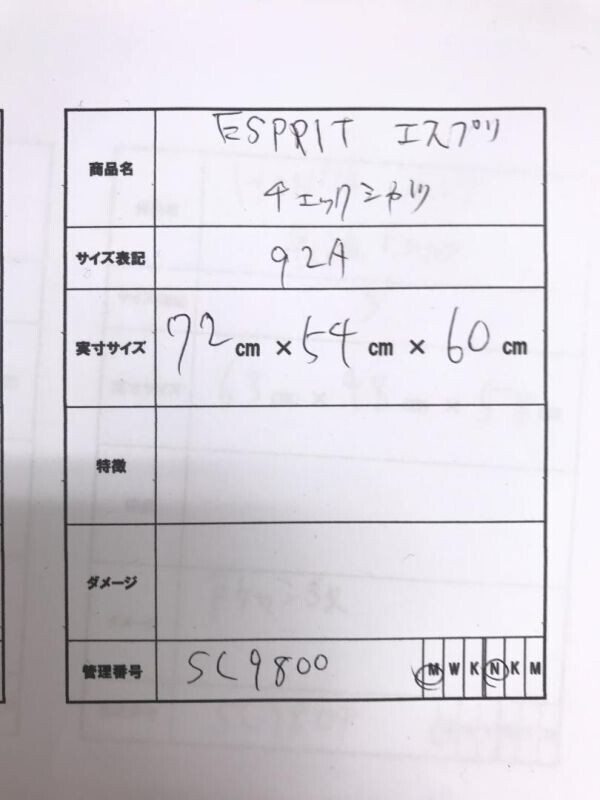 商品名
ESPRIT エスプリ
チェックシャツ
サイズ表記 92A
実寸サイズ 72 cm × 54 cm × 60 cm
特徴
ダメージ
管理番号 SC9800 M W K N K M